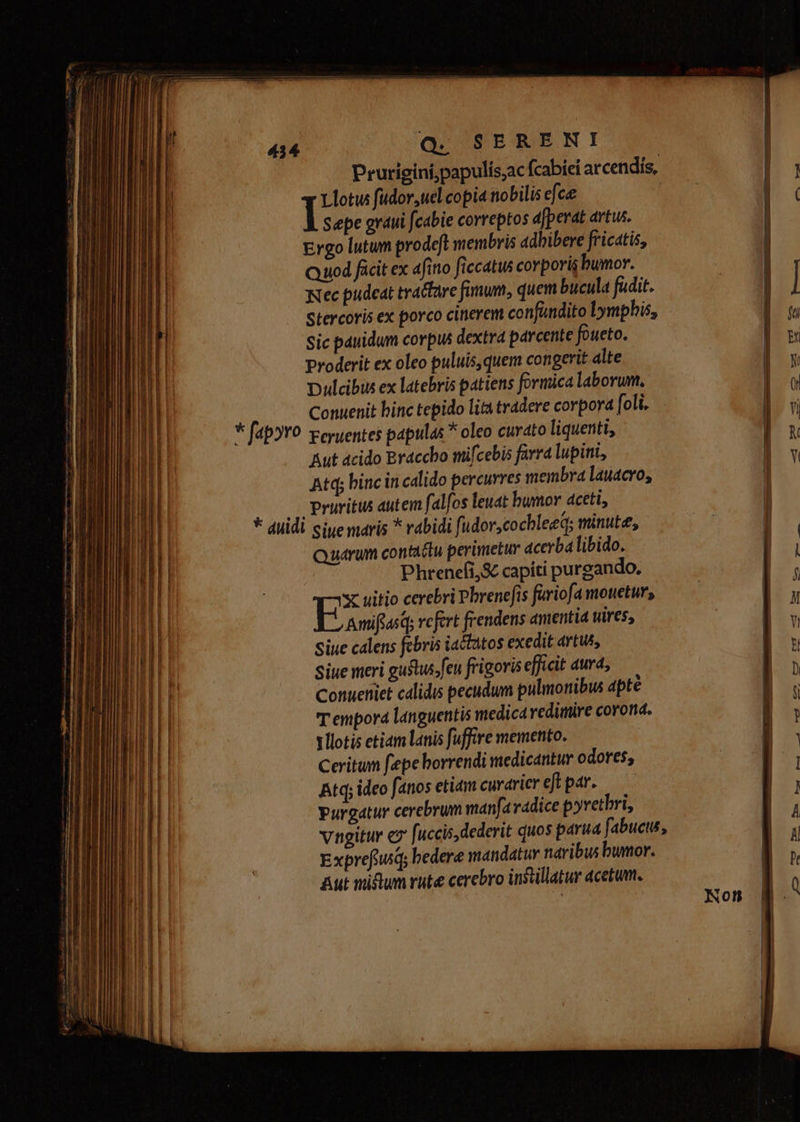 434 Q. SERENI
Prurigini, papulis, ac ſcabiei arcendis.
Illotus ſudor, uel copia nobilis eſcæ
Sæpe graui ſcabie correptos aſperat artus.
Ergo lutum prodeſt membris adhibere fricatis,
Quod facit ex aſino ſiccatus corporis humor.
Nec pudeat tractare fimum, quem bucula fudit.
Stercoris ex porco cinerem confundito lymphis,
Sic pauidum corpus dextra parcente foueto.
Proderit ex oleo puluis, quem congerit alte
Dulcibus ex latebris patiens formica laborum.
Conuenit hinc tepido lita tradere corpora ſoli.
* ſapyro Feruentes papulas * oleo curato liquenti,
Aut acido Braccho miſcebis farra lupini,
Atq; hinc in calido percurres membra lauacro,
Pruritus autem falſos leuat humor aceti,
* auidi Siue maris * rabidi ſudor, cochleæq; minutæ,
Quarum contactu perimetur acerba libido.
Phreneſi, & capiti purgando.
EX uitio cerebri Phreneſis furioſa mouetur,
Amiſſasq; refert frendens amentia uires,
Siue calens febris iactatos exedit artus,
Siue meri guſtus, ſeu frigoris efficit aura,
Conueniet calidis pecudum pulmonibus apte
Tempora languentis medica redimire corona.
Illotis etiam lanis ſuffire memento.
Ceritum ſæpe horrendi medicantur odores,
Atq; ideo ſanos etiam curarier eſt par.
Purgatur cerebrum manſa radice pyrethri,
Vngitur & ſuccis, dederit quos parua ſabucus,
Expreſſusq; hederæ mandatur naribus humor.
Aut miſtum rutæ cerebro inſtillatur acetum.
Non